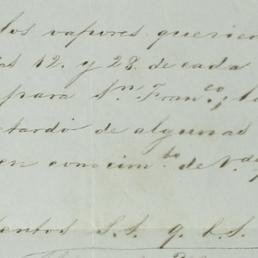 los vapores
as 12. y 28. de cada
para Sn. Franco.,
tardo de algunas
en conocimto. de V.
entos S. S. q. b. S.